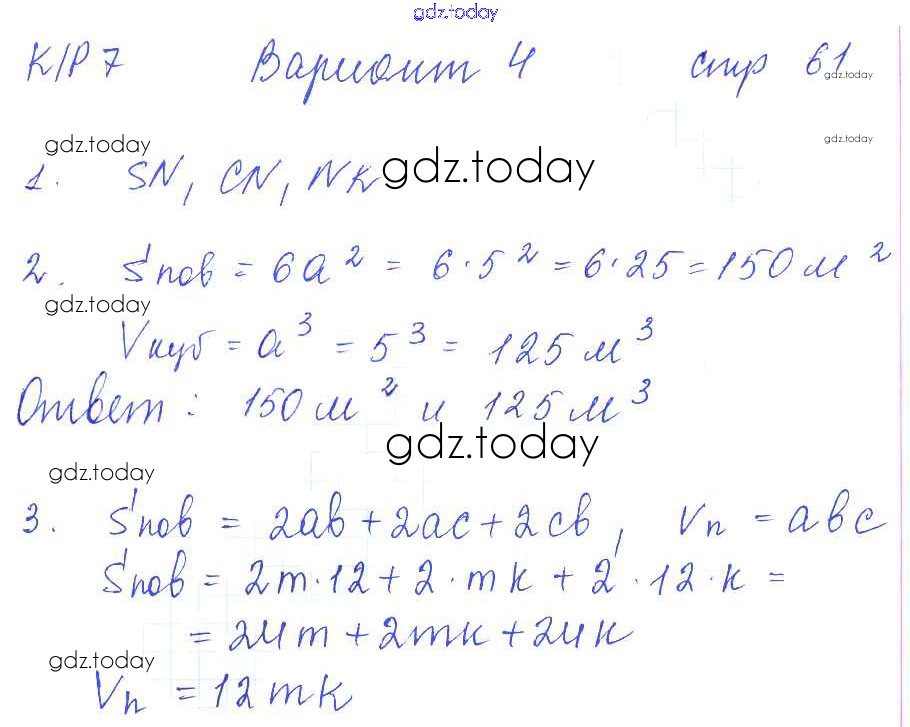 gdz.today
К/Р 7 Вариант 4 стр 61
gdz.today
gdz.today gdz.today
1. SN, CN, NK gdz.today
2. Sпов = 6a² = 6·5² = 6·25 = 150 м²
gdz.today
Vкуб = a³ = 5³ = 125 м³
Ответ: 150 м² и 125 м³
gdz.today
gdz.today
3. Sпов = 2ab + 2ac + 2cb, Vп = abc
Sпов = 2m·12 + 2·mk + 2·12·k =
= 24m + 2mk + 24k
gdz.today
Vп = 12mk